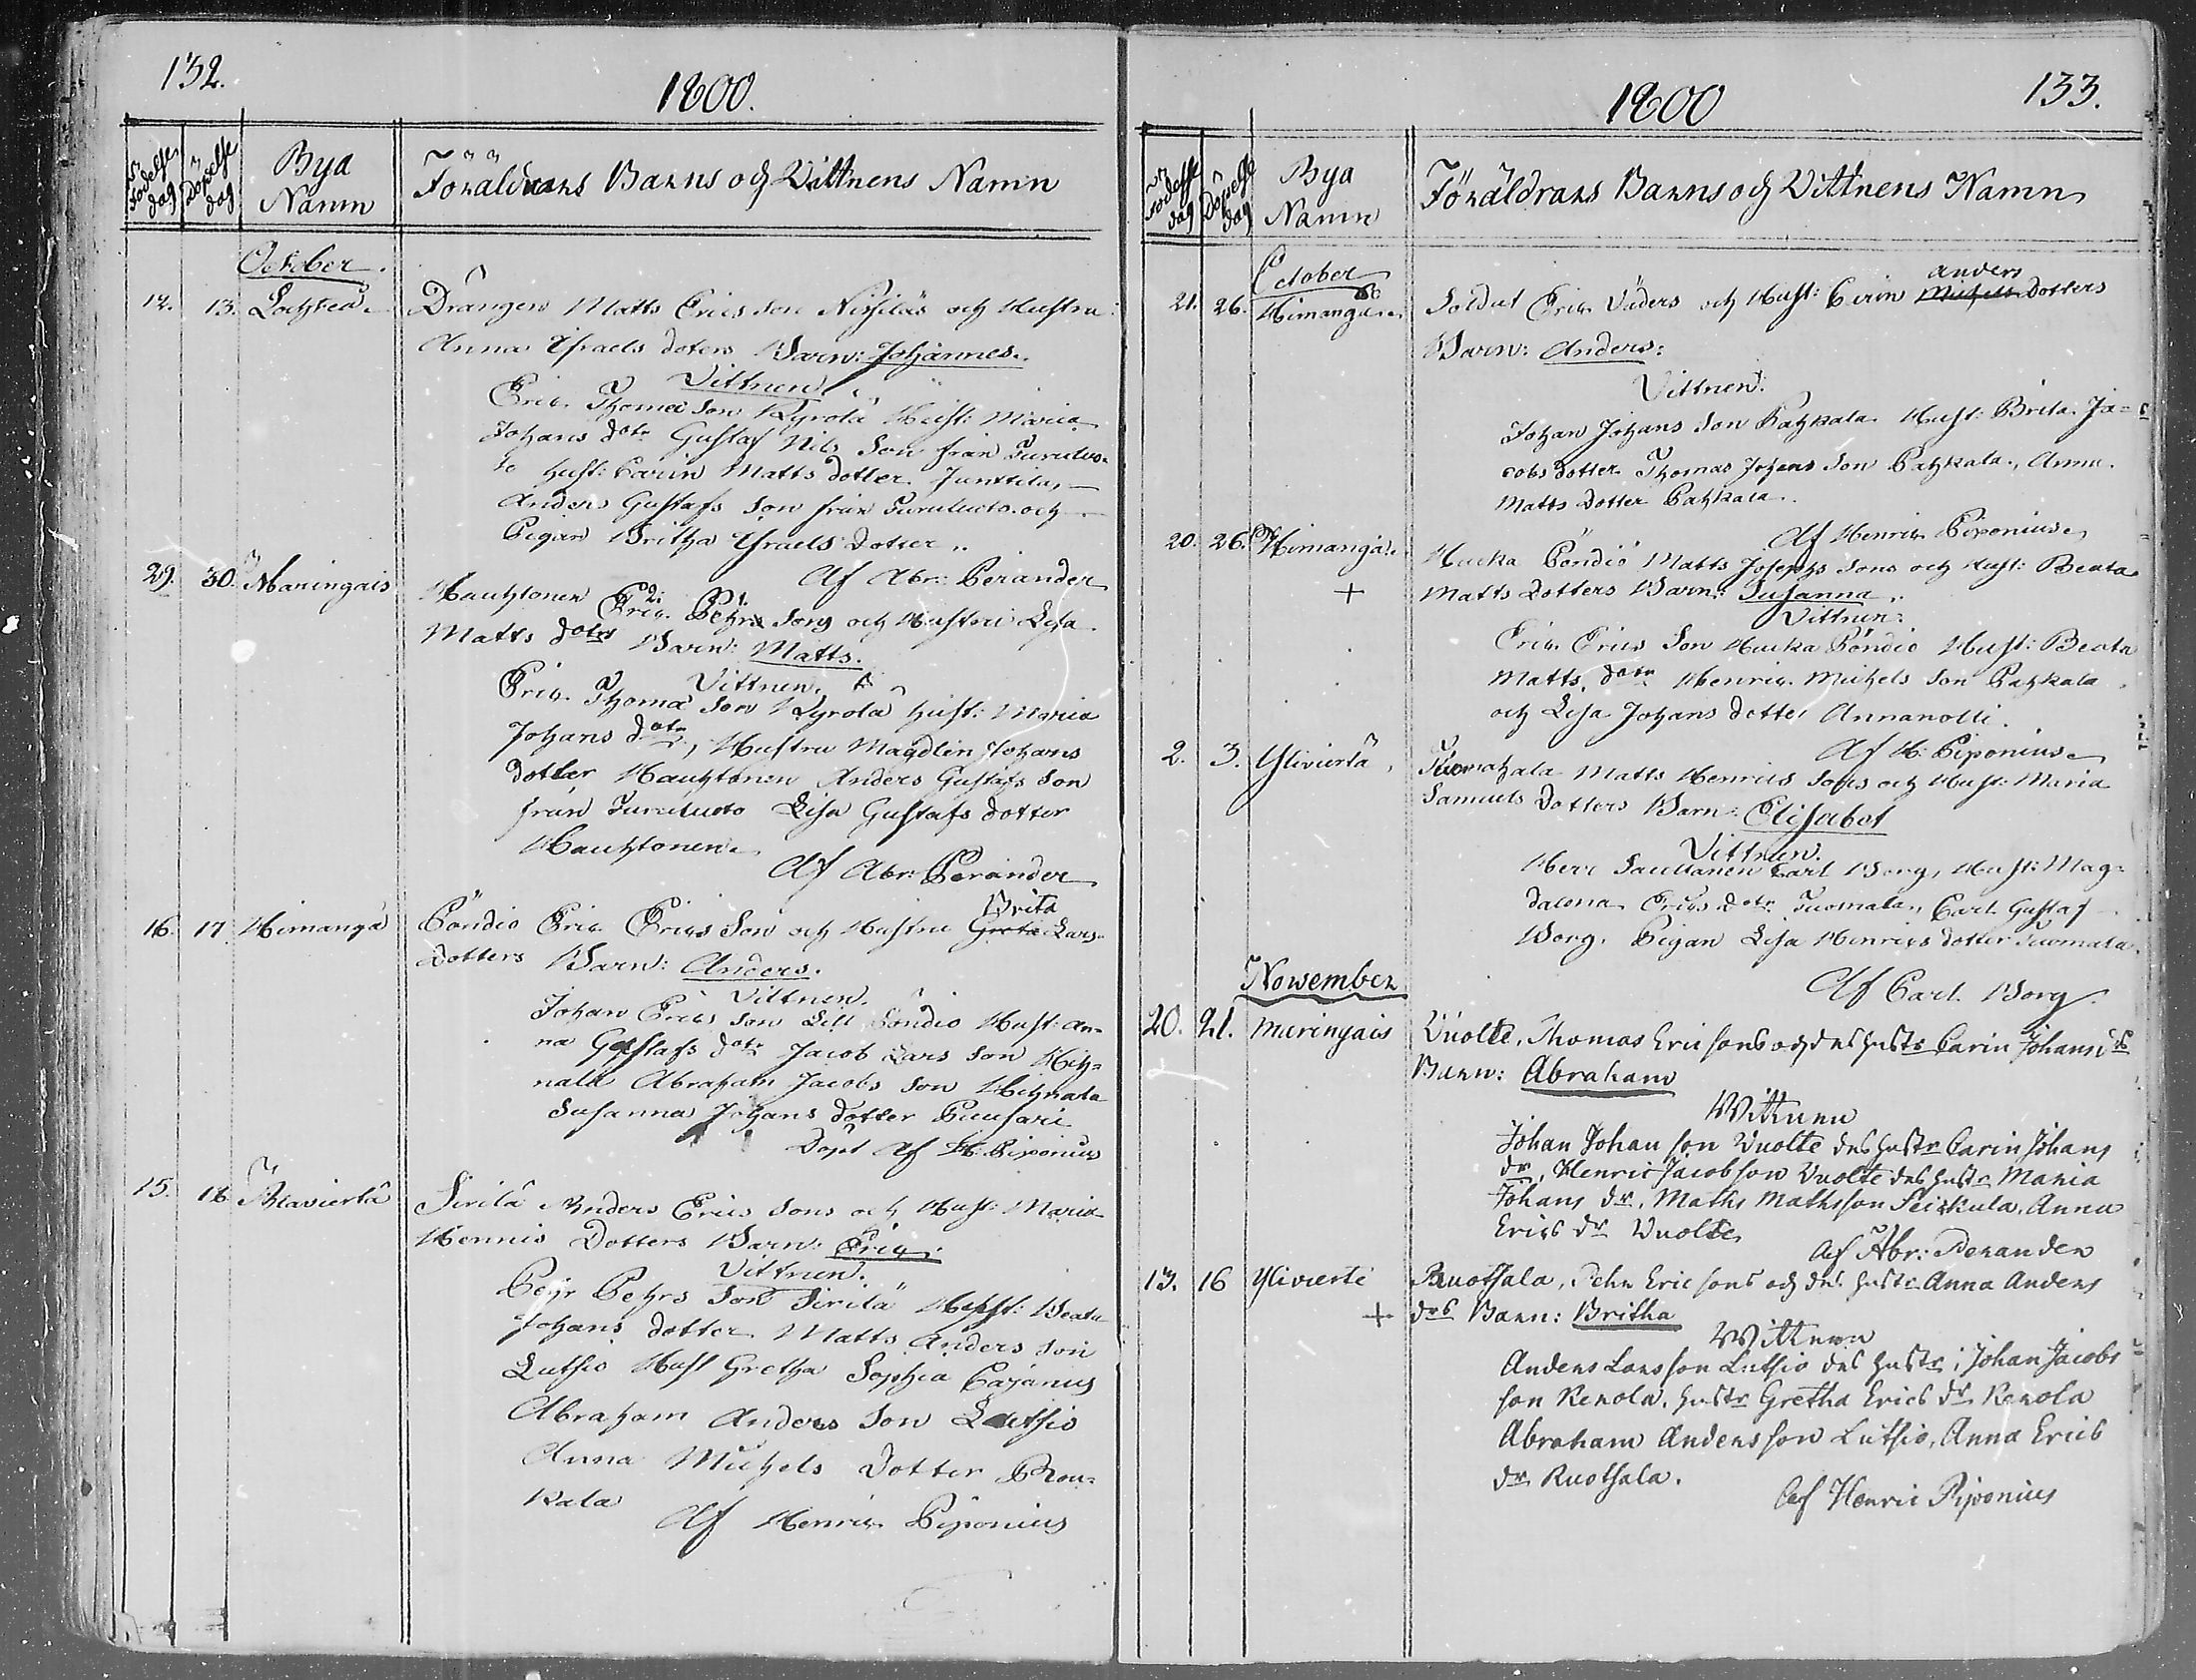 132.
1800.
Födelse dag
Döpelse dag
Bya Namn
Föräldrars Barns och Wittnens Namn
October.
12. 13. Lochteå. Drängen Matts Erics Son Nissilas och Hustru:
Anna Israels doters Barn: Johannes.
Vittnen
Eric Thomæ Son Kyrölä Hust: Maria
Johans dotr Gustaf Nils Son från Turuluo-
to hust: Carin Matts dotter Junttila,
Anders Gustafs Son från Turuluoto. och
Pigan Britha Israels Dotter.
Af Abr: Perander
29. 30. Maringais Hauhtonen Eric Pehrs Sons och Hustru Lisa
2. 1.
Matts dotrs Barn: Matts.
Vittnen.
Eric Thomæ Son Kyrölä hust: Maria
Johans dotr, Hustru Magdlin Johans
dotter Hauhtonen Anders Gustafs Son
från Turuluoto Lisa Gustafs dotter
Hauhtonen.
Af Abr: Perander
16. 17. Himanga Pöndiö Eric Erics Son och Hustru Greta Brita Lars
Dotters Barn: Anders.
Vittnen.
Johan Erics Son Lill Pöndiö Hust: An-
na Gustafs dotr Jacob Lars Son Hih-
nala Abraham Jacobs Son Hihnala
Susanna Johans dotter Puusari
Döpt Af H: Piponius
15. 18. Alavierta Sirilä Anders Erics Sons och Hust: Maria
Hennis Dotters Barn: Eric.
Vittnen.
Pehr Pehrs Son Sirilä Hust: Beata
Johans dotter Matts Anders Son
Luthio Hust Gretha Sophia Cajanus
Abraham Anders Son Luthio
Anna Michels Dotter Rou-
kala
Af Henric Piponius
1800
133.
Födelse dag
Döpelse dag
Bya Namn
Föräldrars Barns och Vittnens Namn
October
21. 26. Himanga Soldat Eric Väders och Hust: Carin Michels anders Dotters
Barn: Anders:
Vittnen:
Johan Johans Son Pahkala Hust: Brita Ja-
cobs dotter Thomas Johans Son Pahkala, Anna
Matts Dotter Pahkala.
Af Henric Piponius
20. 26. Himanga Hucka Pöndiö Matts Josephs Sons och Hust: Beata
+ Matts Dotters Barn: Susanna.
Vittnen:
Eric Erics Son Hucka Pöndiö Hust: Beata
Matts dotr Henric Michels Son Pahkala
och Lisa Johans dotter Annanolli.
Af H: Piponius
2. 3. Ylivierta, Tuomahala Matts Henrics Sons och Hust: Maria
Samuels Dotters Barn: Elisabet
Vittnen.
Herr Carl Borg, Hust: Mag-
dalena Erics dotr Tuomala, Carl Gustaf
Borg. Pigan Lisa Henrics dotter Tuomala.
Af Carl Borg.
Nowember
20. 21. Maringais Vuolte, Thomas Eric sons och des hustr Carin Johans drs
Barn: Abraham
Wittnen
Johan Johan son Vuolte des hustr Carin Johans
dr, Henric Jacobson Vuolte des hustr Maria
Johans dr, Maths Mathsson Seikkula, Anna
Erics dr Vuolte
af Abr: Perander
13. 16 Ylivierte Ruotsala, Pehr Eric sons och des hustr Anna Anders
+ drs Barn: Britha
Wittnen
Anders Larsson Luthio des hustr; Johan Jacobs
son Rekola, hustr Gretha Erics dr Rekola
Abraham Andersson Luthio, Anna Erics
dr Ruotsala.
af Henric Piponius